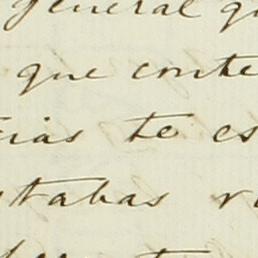 general q
que conte
cias te es
stabas r